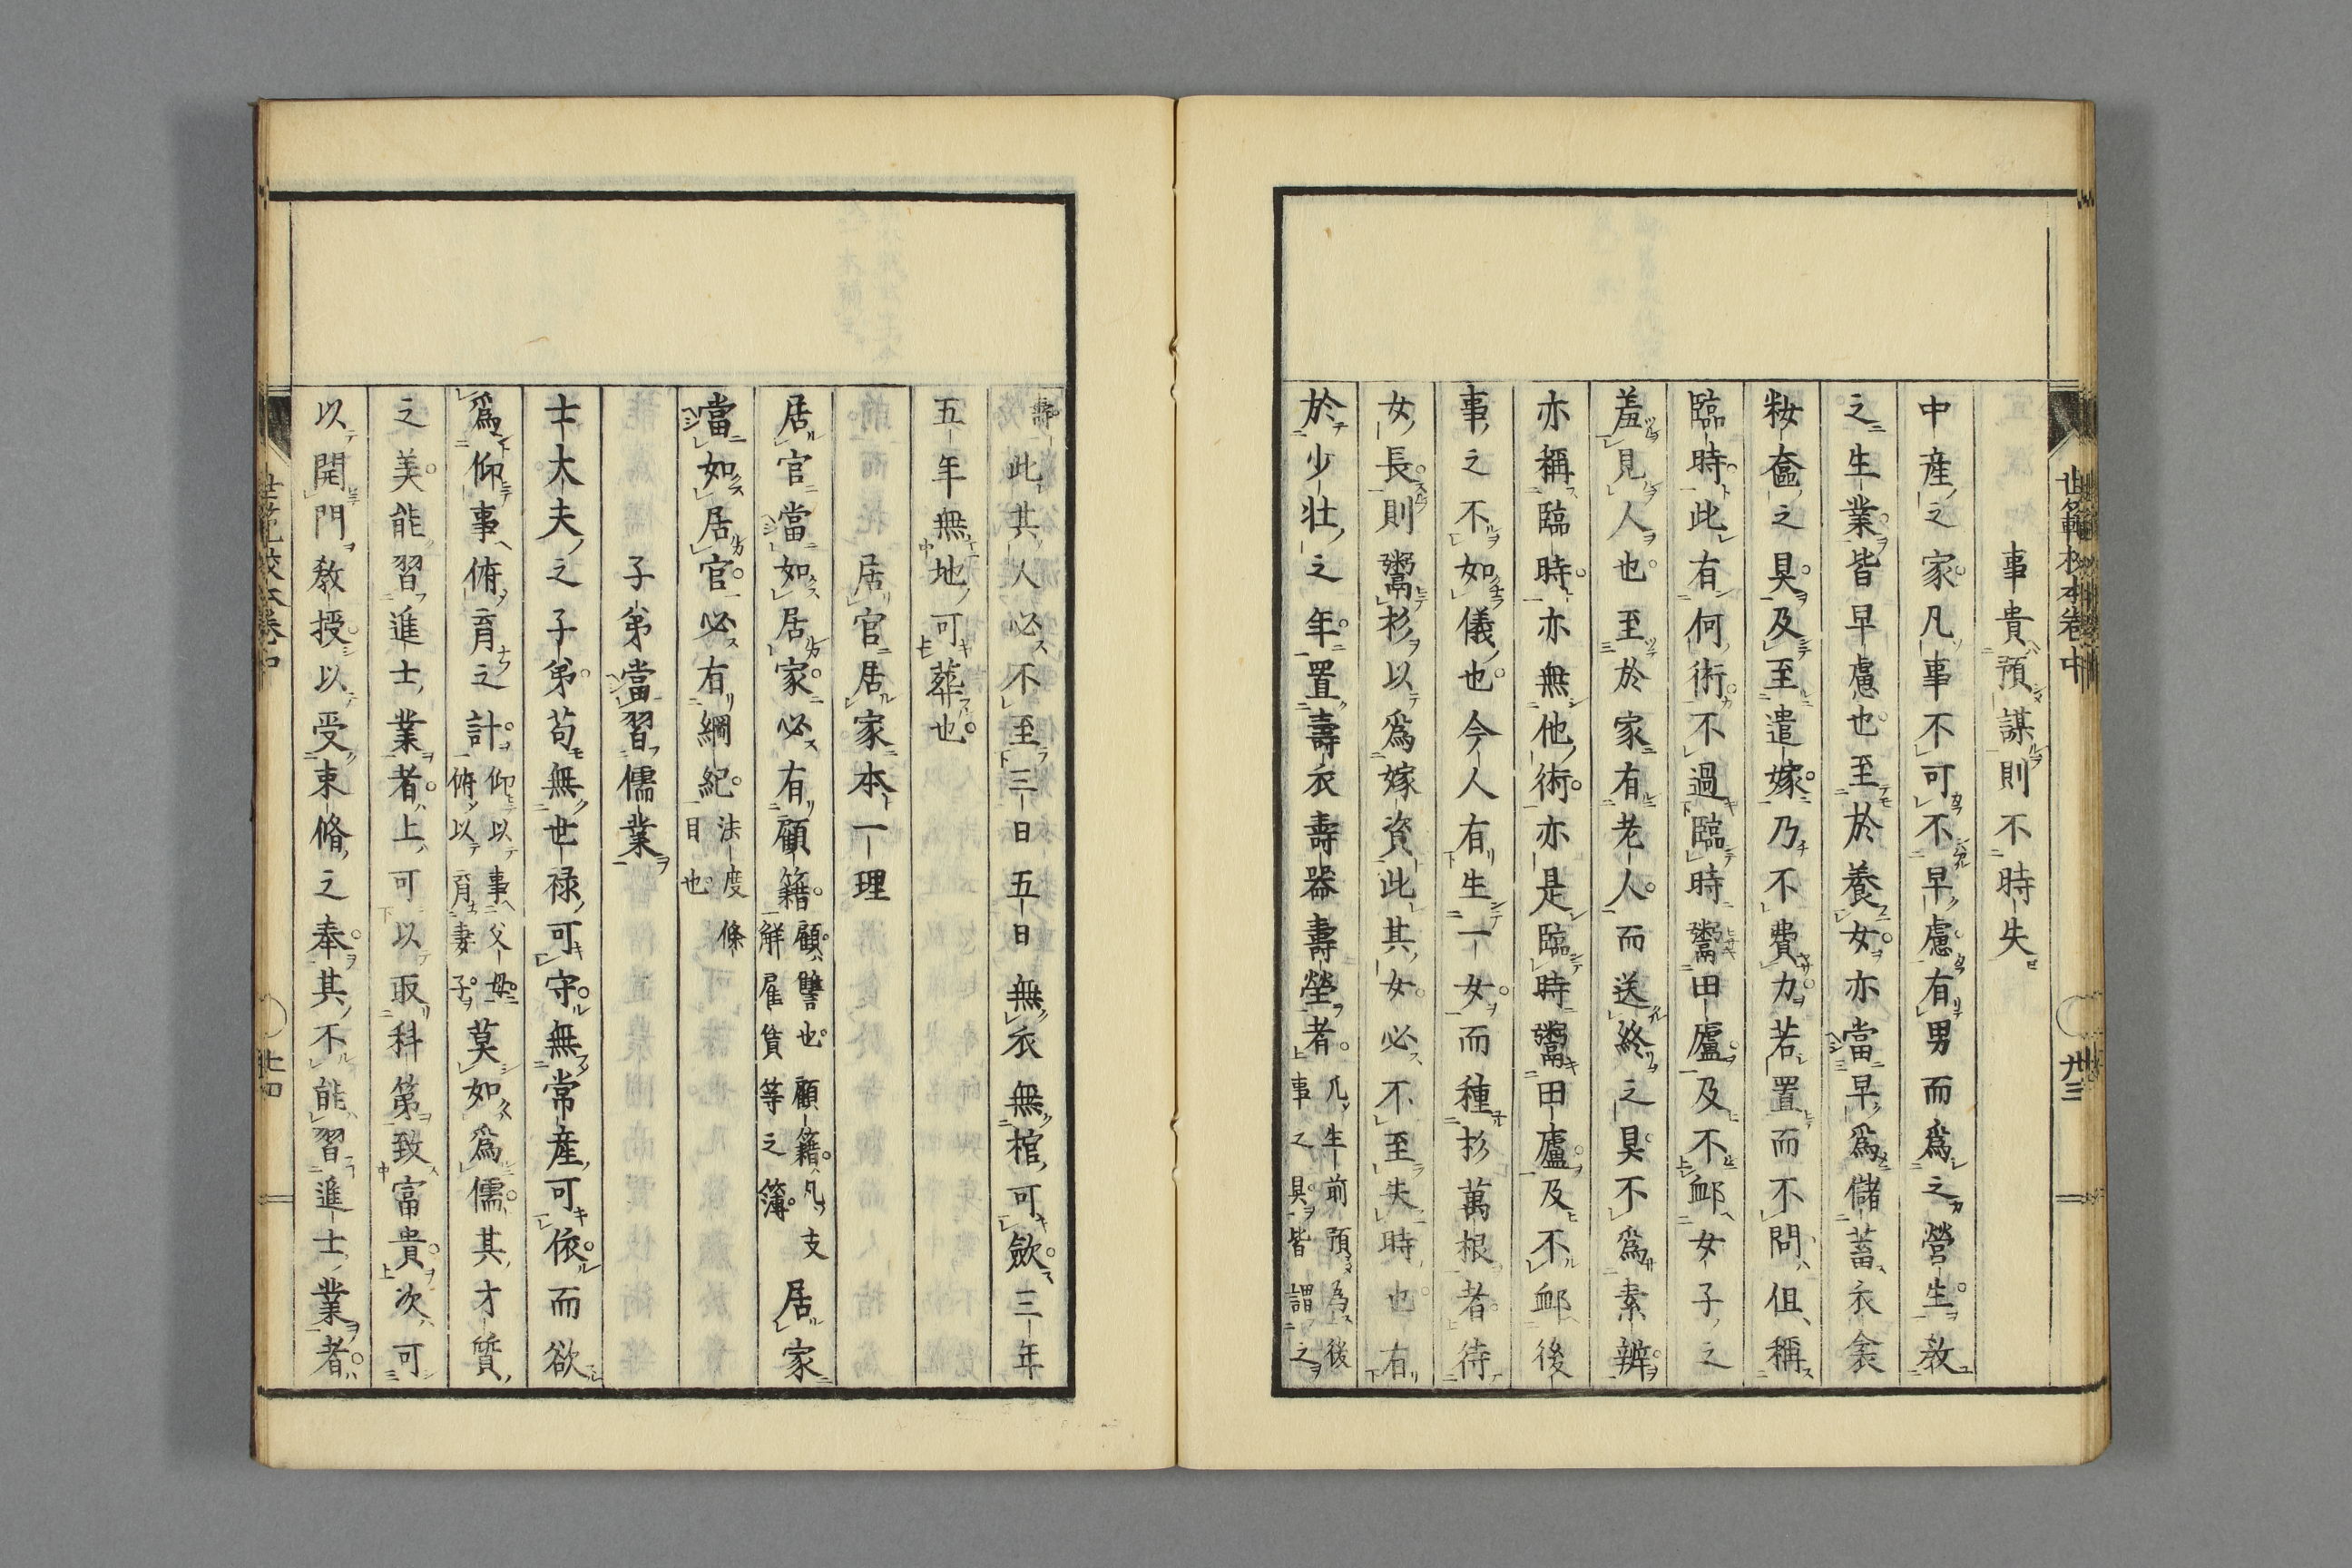 世範校本卷中
廿三
事貴預謀則不時失
中産之家凡事不可不早慮有男而爲之營生敎
之生業皆早慮也至於養女亦當早爲儲蓄衣衾
粧奩之具及至遣嫁乃不費力若置而不問但稱
臨時此有何術不過臨時鬻田廬及不卹女子之
羞見人也至於家有老人而送終之具不爲素辨
亦稱臨時亦無他術亦是臨時鬻田廬及不卹後
事之不如儀也今人有生一女而種杉萬根者待
女長則鬻杉以爲嫁資此其女必不至失時也有
於少壯之年置壽衣壽器壽塋者凡生前預爲後事之具皆謂之
壽此其人必不至三日五日無衣無棺可歛三年
五年無地可葬也
居官居家本一理
居官當如居家必有顧籍顧讐也顧籍凡支解雇賃等之簿居家
當如居官必有綱紀法度條目也
子弟當習儒業
士大夫之子弟苟無世禄可守無常産可依而欲
爲仰事俯育之計仰以事父母俯以育妻子莫如爲儒其才質
之美能習進士業者上可以取科第致富貴次可
以開門敎授以受束脩之奉其不能習進士業者
世範校本卷中